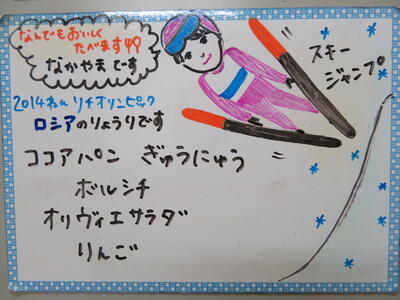 なんでもおいしく
たべます
なかやまです
スキー
ジャンプ
2014ねん ソチオリンピック
ロシアのりょうりです
ココアパン ぎゅうにゅう
ボルシチ
オリヴィエサラダ
りんご